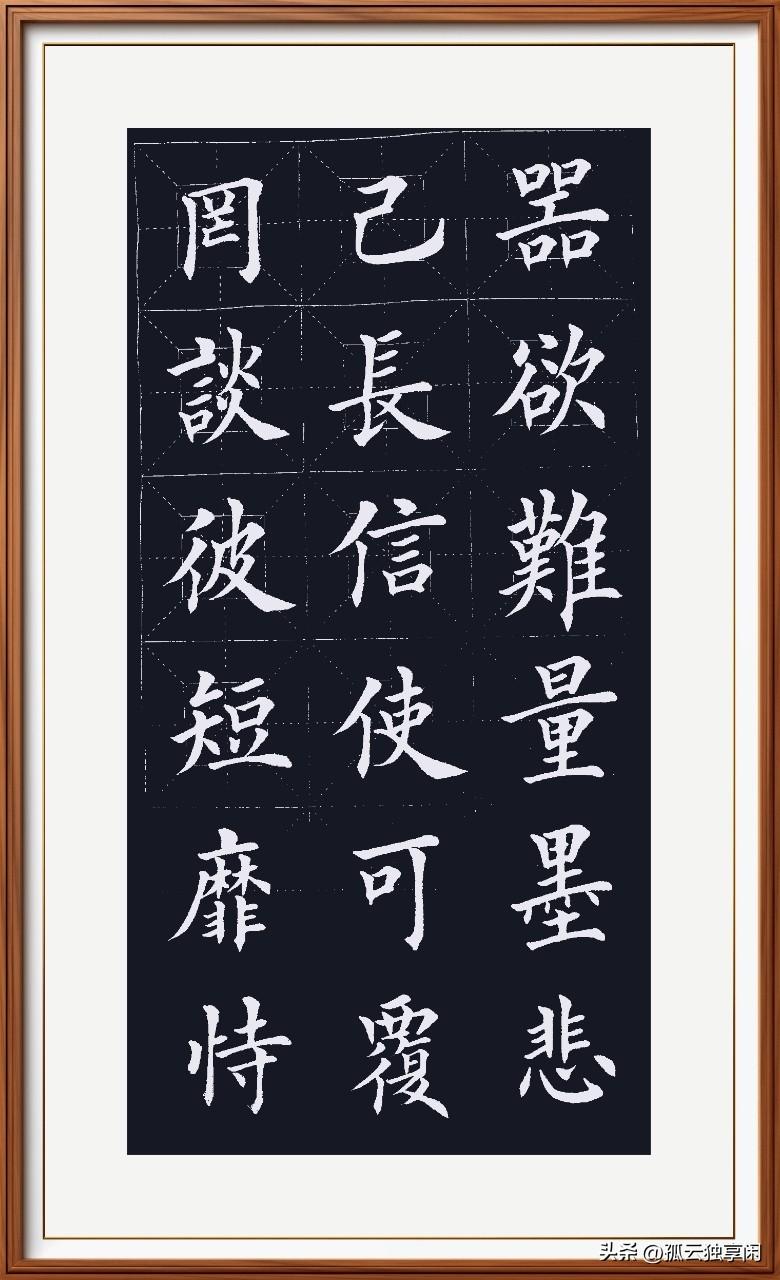 罔談彼短靡恃
己長信使可覆
器欲難量墨悲
头条 @孤云独享闲